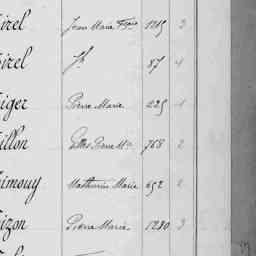 irel Jean Marie Fçois 1215 2
irel Jh 87 4
iger Pierre Marie 225 1
illon Gilles Pierre Mie 768 2
imouy Mathurin Marie 692 2
izon Pierre Marie 1280 3